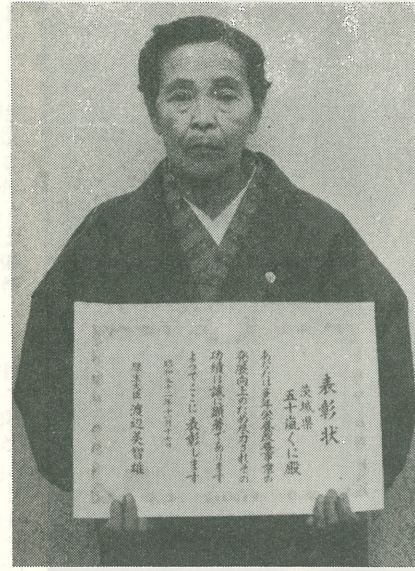 表彰状
茨城県
五十嵐くに殿
あなたは多年栄養改善事業の
発展向上のため尽力されその
功績は誠に顕著であります
よってここに表彰します
昭和五十二年十一月
厚生大臣 渡辺美智雄